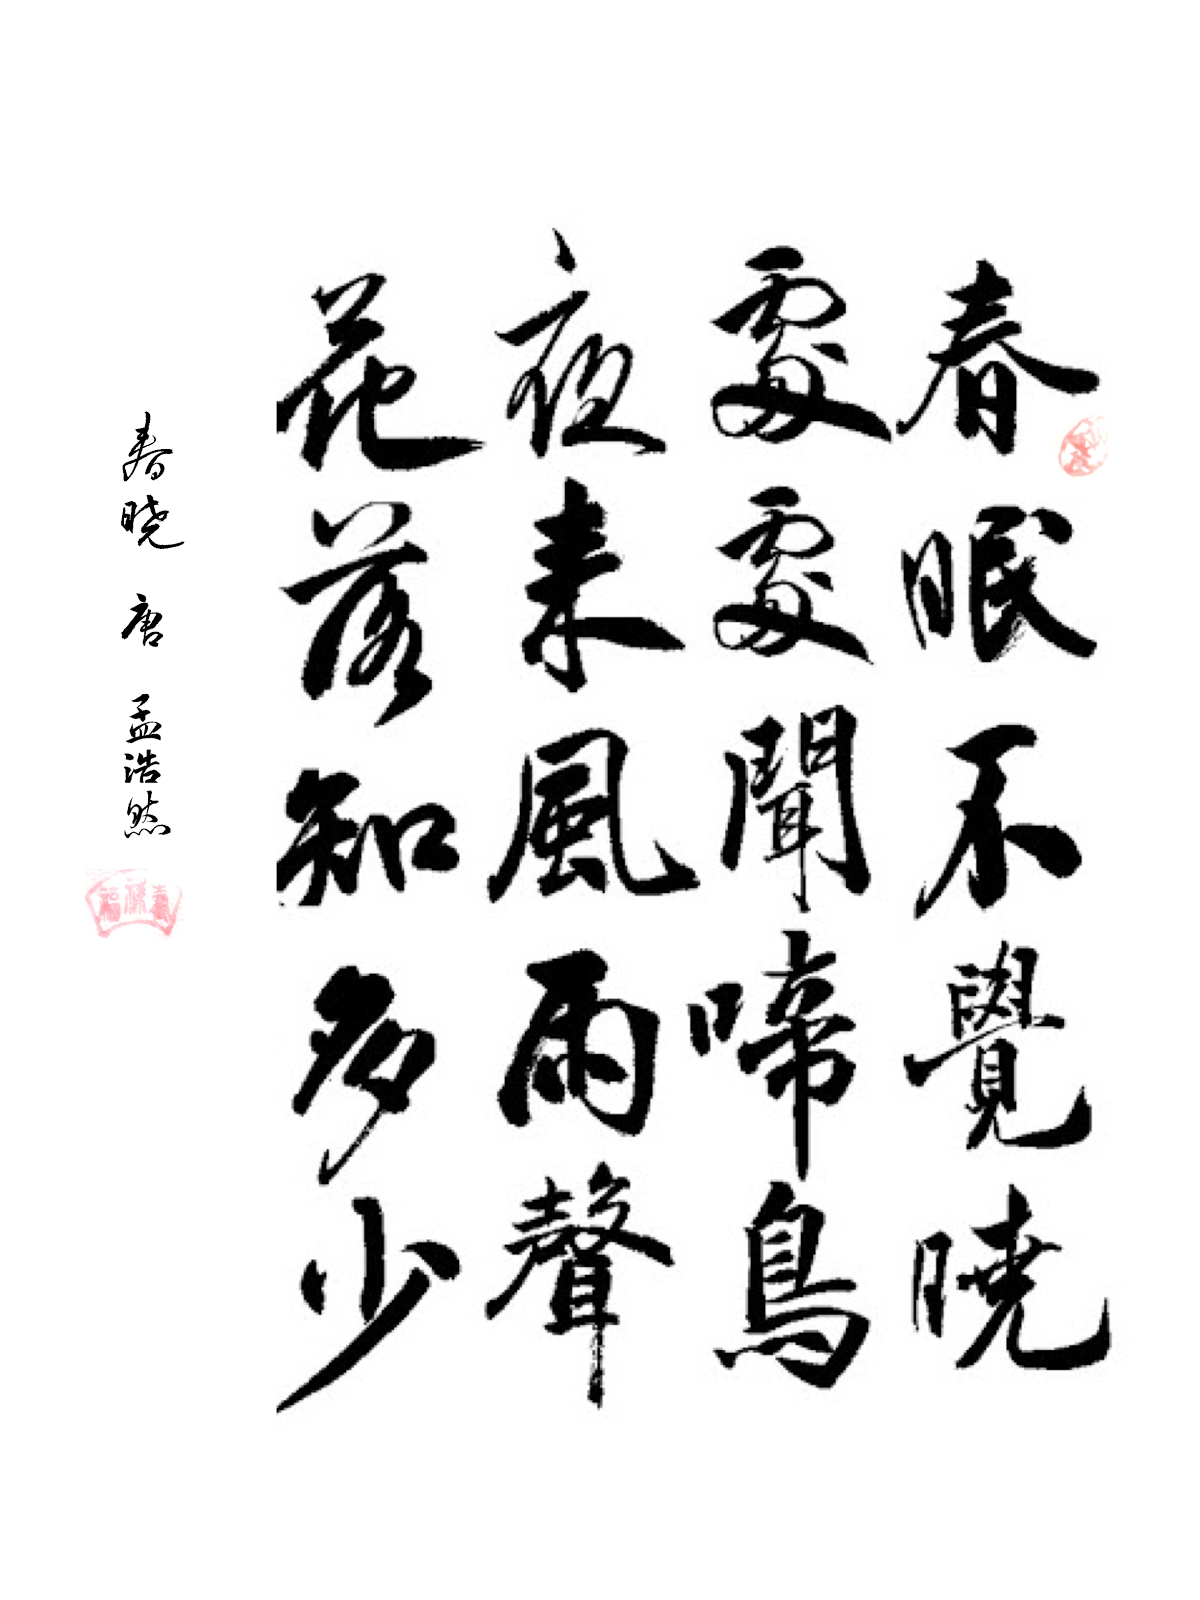 春眠不覺曉
處處聞啼鳥
夜来風雨聲
花落知多少
春晓 唐 孟浩然